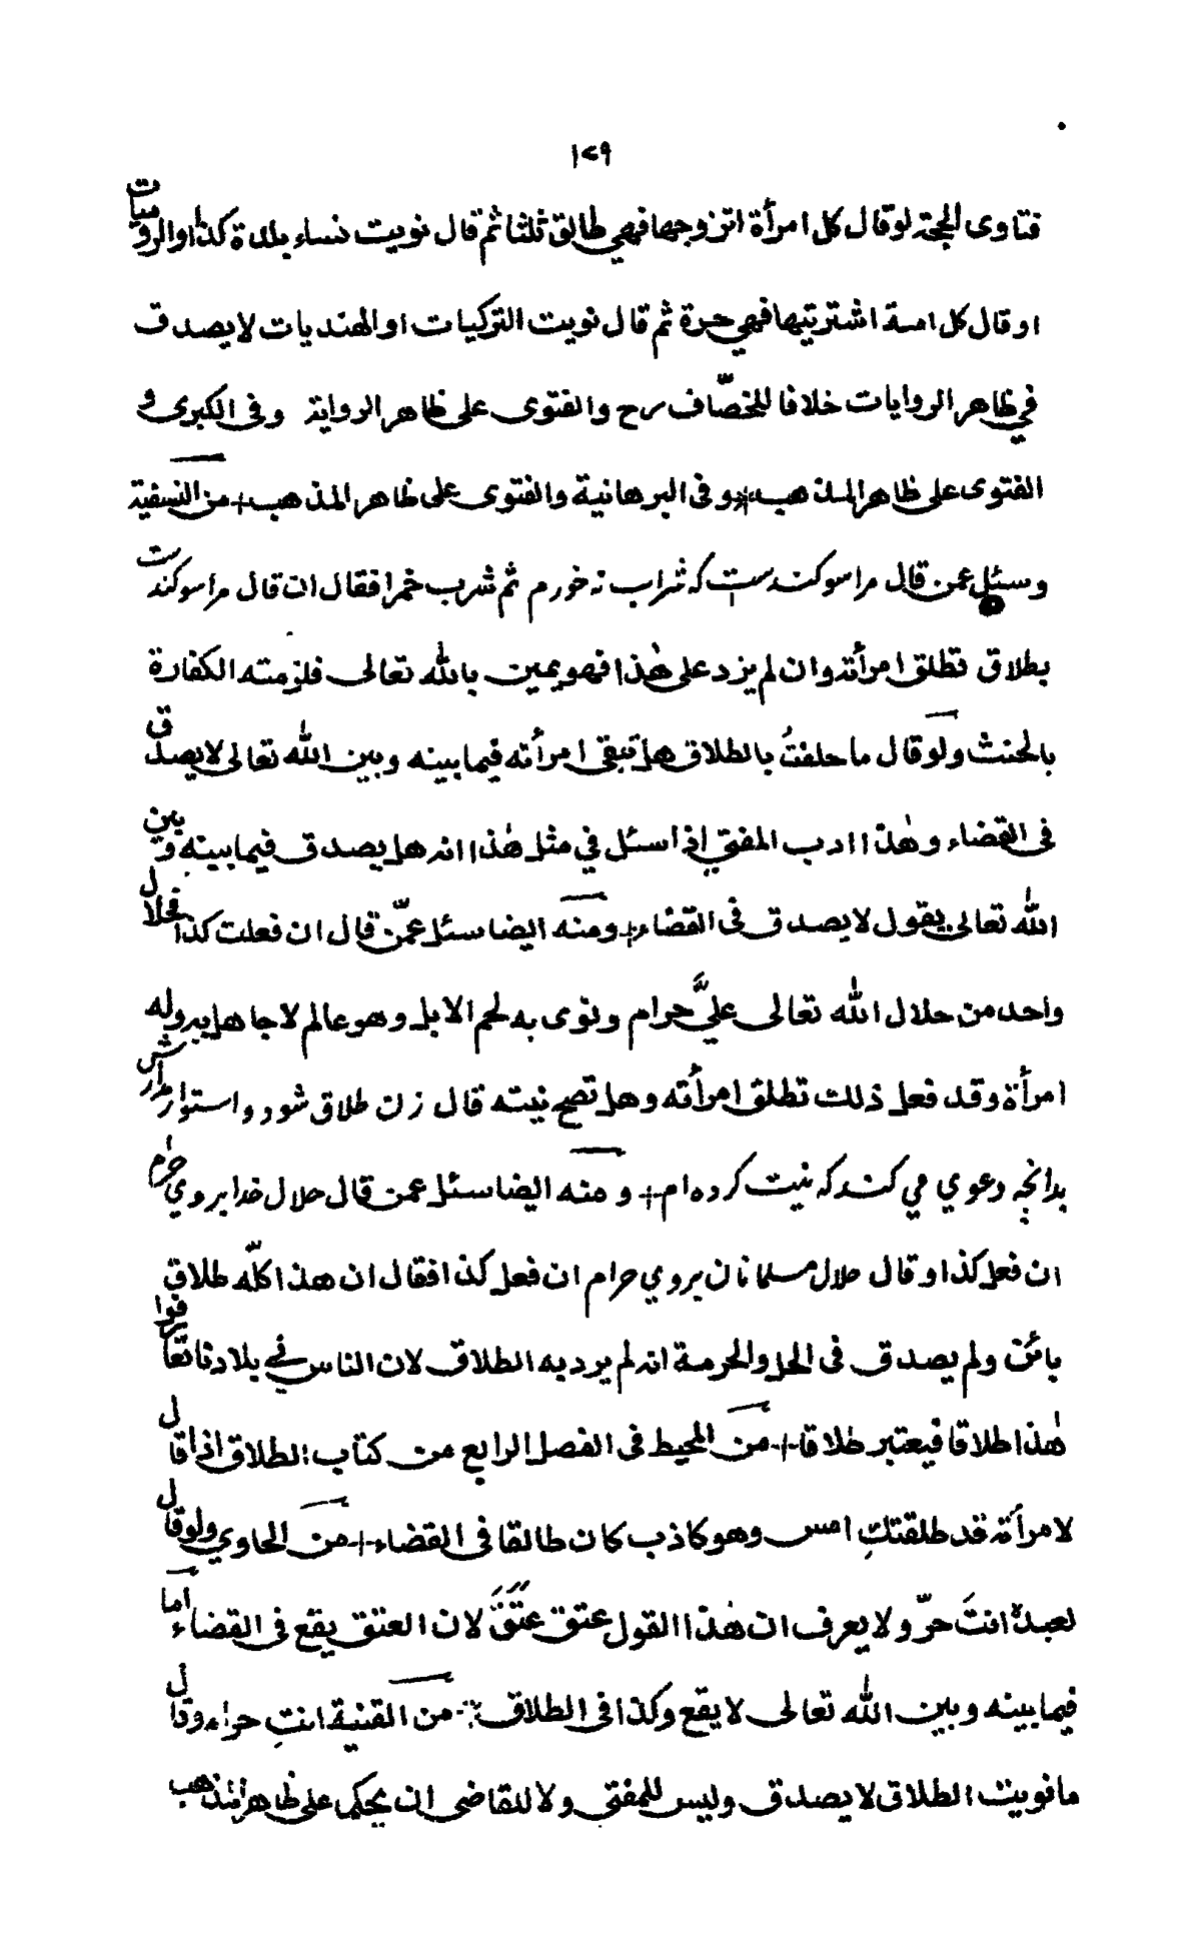 ١٧٩
فتاوى الحجة لو قال كل امرأة اتزوجها فهي طالق ثلثا ثم قال نويت نساء بلدة كذا او الروميات
او قال كل امة اشتريتها فهي حرة ثم قال نويت التركيات او الهنديات لا يصدق
في ظاهر الروايات خلافا للخصّاف رح والفتوى على ظاهر الرواية وفى الكبرى و
الفتوى على ظاهر المذهب وفى البرهانية والفتوى على ظاهر المذهب + من النسفية
وسئل عمن قال مرا سوكندست كه شراب نه خورم ثم شرب خمرا فقال ان قال مرا سوكندست
بطلاق تطلق امرأته وان لم يزد على هٰذا فهو يمين بالله تعالى فلزمته الكفارة
بالحنث ولو قال ما حلفتُ بالطلاق هل تبقى امرأته فيما بينه وبين الله تعالى لا يصدق
فى القضاء وهٰذا ادب المفتي اذا سئل في مثل هٰذا انه هل يصدق فيما بينه وبين
الله تعالى يقول لا يصدق فى القضاء + ومنه ايضا سئل عمّن قال ان فعلت كذا فحلال
واحد من حلال الله تعالى عليَّ حرام ونوى به لحم الابل وهو عالم لا جاهل بدوله
امرأة وقد فعل ذلك تطلق امرأته وهل تصح نيته قال زن طلاق شود و استوار ندارش
بدانچه دعوي مي كند كه نيت كرده ام + ومنه ايضا سئل عمن قال حلال خدا بروي حرام
ان فعل كذا وقال حلال مسلمانان بروي حرام ان فعل كذا فقال ان هذا كلّه طلاق
بائن ولم يصدق فى الحل والحرمة انه لم يرد به الطلاق لان الناس في بلادنا تعارفوا
هٰذا طلاقا فيعتبر طلاقا + من المحيط فى الفصل الرابع من كتاب الطلاق اذا قال
لامرأته قد طلقتكِ امس وهو كاذب كان طالقا فى القضاء + من الحاوي ولو قال
لعبده انتَ حرّ ولا يعرف ان هٰذا القول عتق عَتَقَ لان العتق يقع فى القضاء اما
فيما بينه وبين الله تعالى لا يقع وكذا فى الطلاق من القنية انتِ حرام وقال
ما نويت الطلاق لا يصدق وليس للمفتي ولا للقاضى ان يحكما على ظاهر المذهب